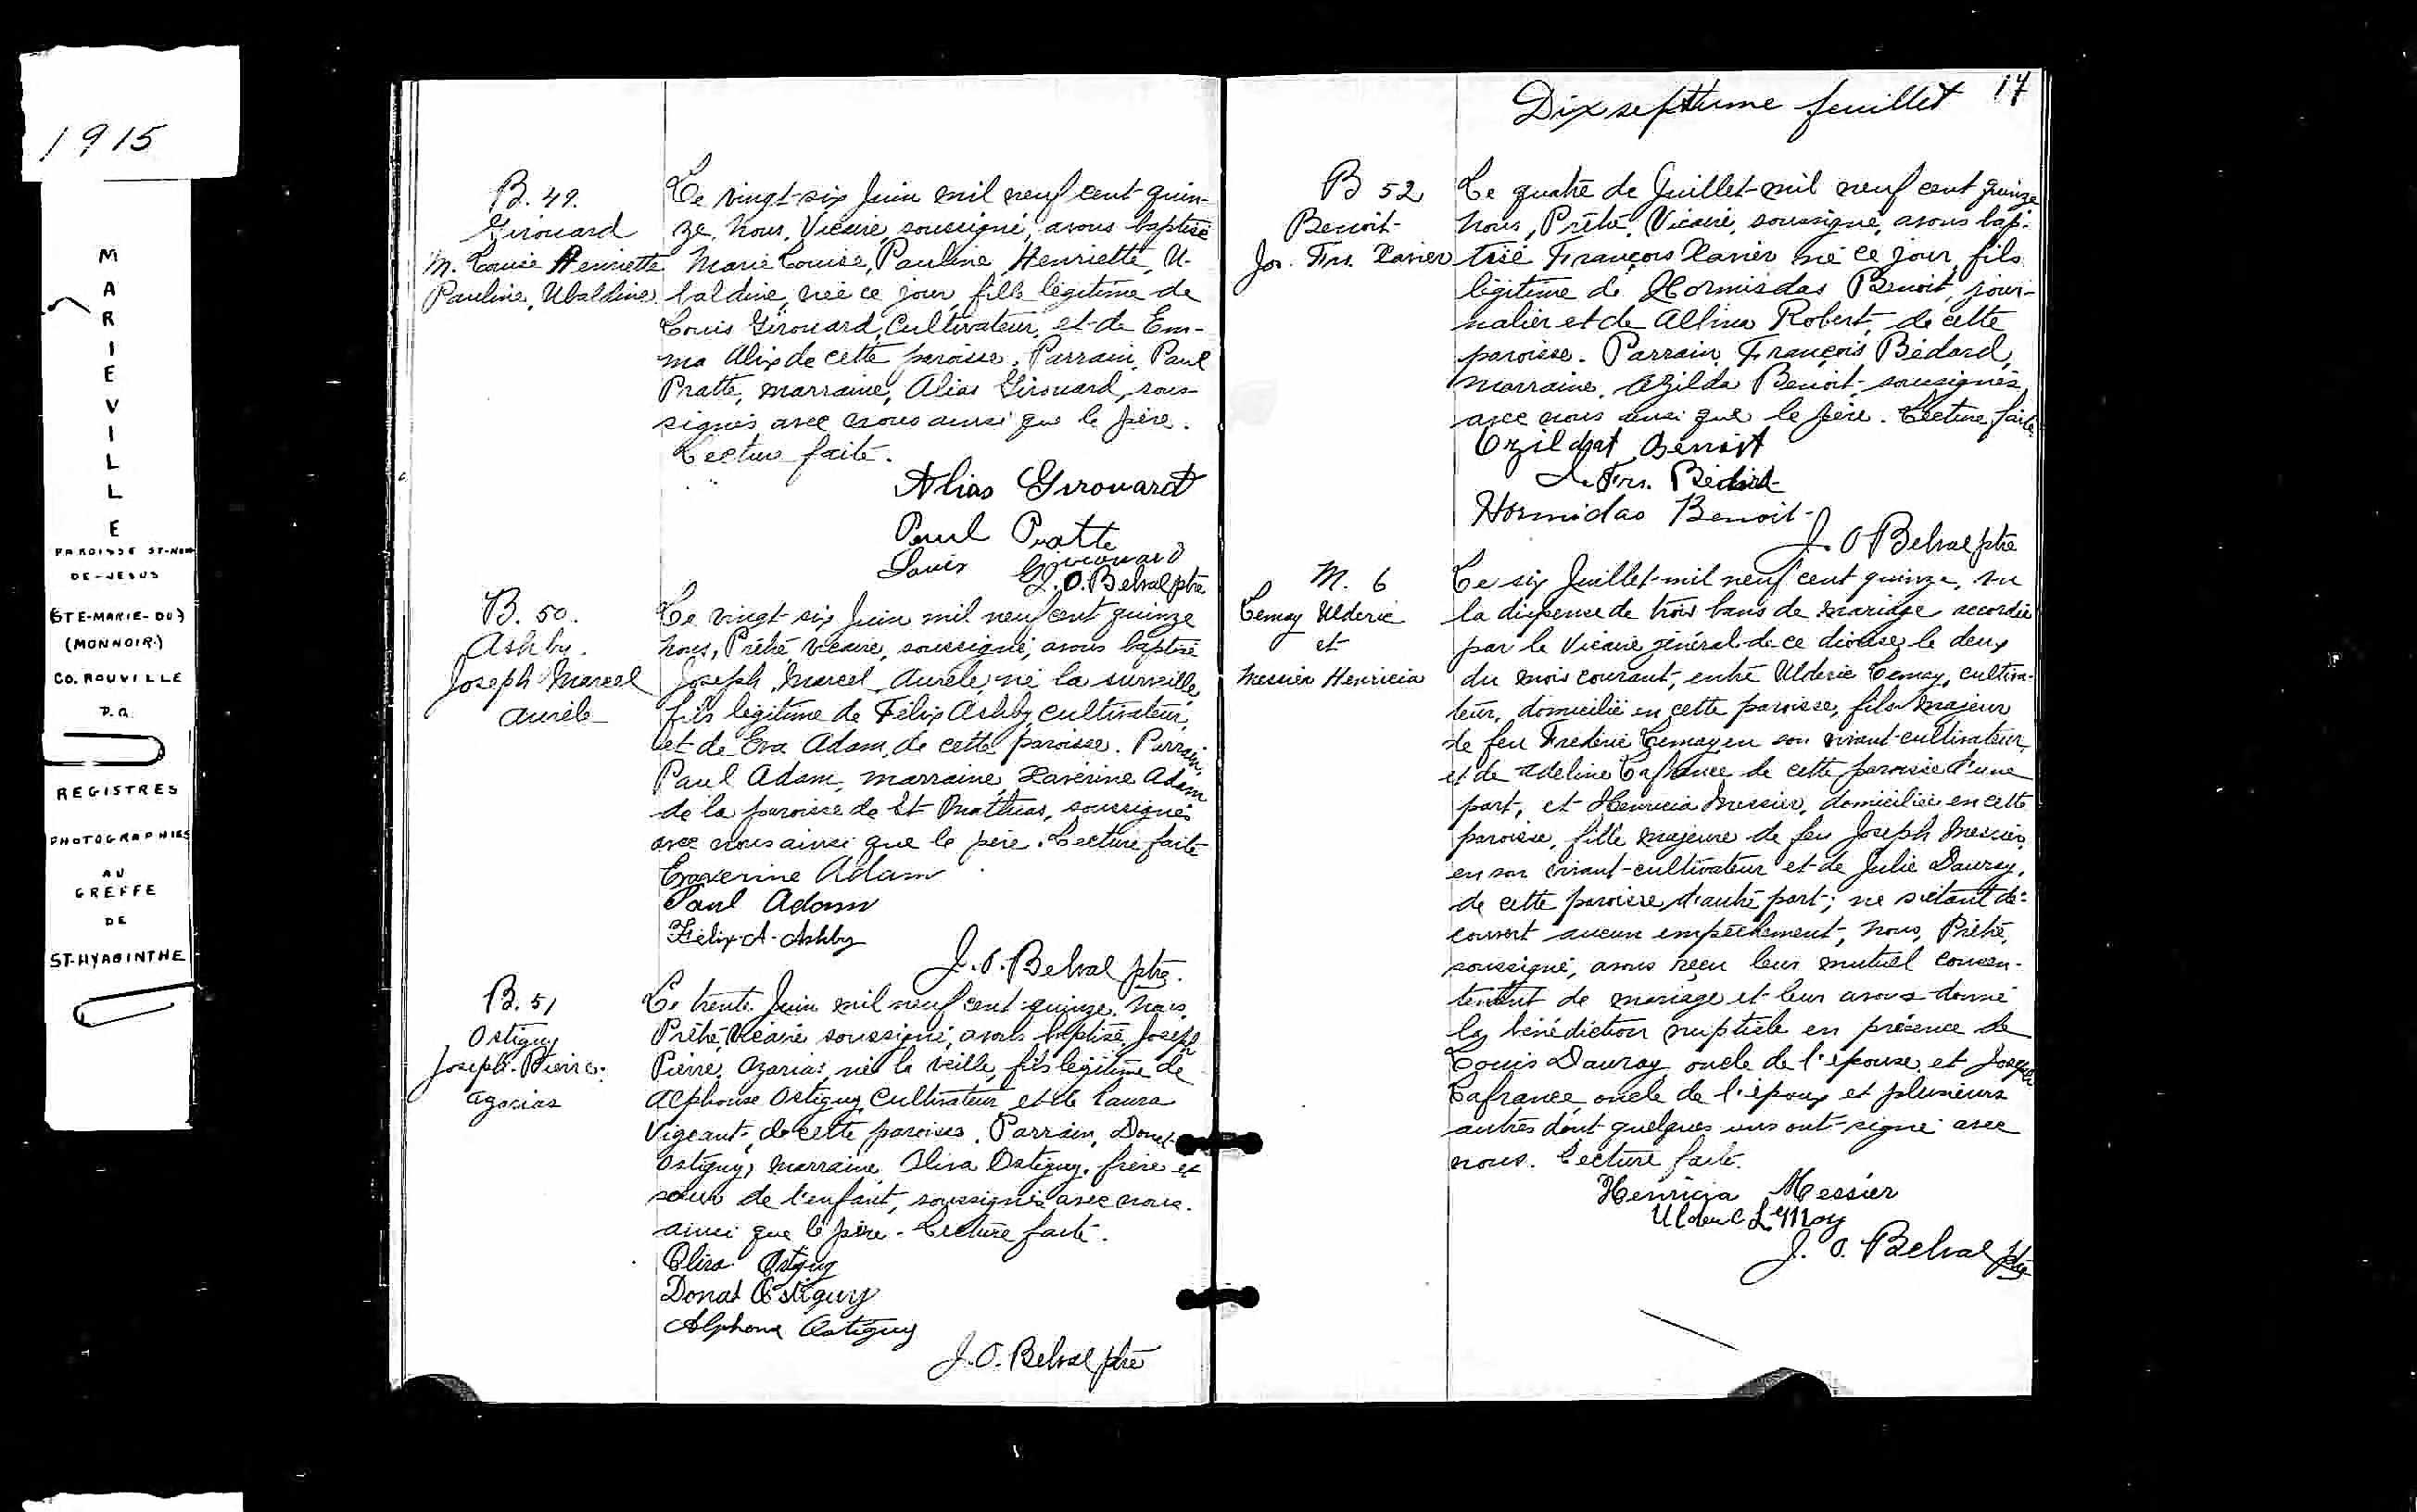 1915
MARIEVILLE
PAROISSE ST-NOM
DE-JESUS
(STE-MARIE-DE)
(MONNOIR)
CO. ROUVILLE
P.Q.
REGISTRES
PHOTOGRAPHIES
AU
GREFFE
DE
ST-HYACINTHE
B. 49.
Girouard
M. Louise Henriette
Pauline, Ubaldine
Le vingt-six Juin mil neuf cent quin-
ze, nous, Vicaire, soussigné, avons baptisé
Marie Louise, Pauline, Henriette, U-
baldine, née ce jour, fille légitime de
Louis Girouard, Cultivateur, et de Em-
ma Alix de cette paroisse. Parrain, Paul
Pratte, marraine, Alias Girouard, sous-
signés avec nous ainsi que le père.
Lecture faite.
Alias Girouard
Paul Pratte
Louis Girouard
J.O. Belval ptre
B. 50.
Ashby.
Joseph Marcel
Aurèle
Le vingt-six Juin mil neuf cent quinze
nous, Prêtre vicaire, soussigné, avons baptisé
Joseph, Marcel, Aurèle, né la surveille,
fils légitime de Félix Ashby, cultivateur,
et de Eva Adam, de cette paroisse. Parrain,
Paul Adam, marraine, Xavérine Adam
de la paroisse de St Mathias, soussignés
avec nous ainsi que le père. Lecture faite
Adam
Paul Adam
Félix-A-Ashby
J.O. Belval ptre.
B. 51
Ostiguy
Joseph-Pierre-
Azarias
Le trente Juin mil neuf cent quinze, nous,
Prêtre, Vicaire soussigné, avons baptisé, Joseph
Pierre, Azarias, né la veille, fils légitime de
Alphonse Ostiguy, Cultivateur, et de Laura
Vigeant, de cette paroisse. Parrain, Donat
Ostiguy, marraine, Oliva Ostiguy, frère et
soeur de l'enfant, soussignés avec nous.
ainsi que le père. Lecture faite.
Oliva Ostiguy
Donat Ostiguy
Alphonse Ostiguy
J.O. Belval ptre
Dix septième feuillet 17
B 52
Benoit
Jos. Frs. Xavier
Le quatre de Juillet mil neuf cent quinze
nous, Prêtre, Vicaire, soussigné, avons bap-
tisé François Xavier né ce jour, fils
légitime de Hormisdas Benoit, jour-
nalier et de Albina Robert, de cette
paroisse. Parrain, François Bédard,
marraine, Azilda Benoit, soussignés
avec nous ainsi que le père. Lecture faite.
Benoit
Frs. Bédard
Hormidas Benoit
J. O Belval ptre
M. 6
Lemay Ulderic
et
Messier Henricia
Le six Juillet mil neuf cent quinze, vu
la dispense de trois bans de mariage accordée
par le Vicaire général de ce diocèse, le deux
du mois courant, entre Ulderic Lemay, cultiva-
teur, domicilié en cette paroisse, fils majeur
de feu Frédéric Lemay en son vivant cultivateur,
et de Adeline Lafrance de cette paroisse d'une
part, et Henricia Messier, domiciliée en cette
paroisse, fille majeure de feu Joseph Messier,
en son vivant cultivateur et de Julie Dauray,
de cette paroisse d'autre part; ne s'étant dé-
couvert aucun empêchement, nous, Prêtre,
soussigné, avons reçu leur mutuel consen-
tement de mariage et leur avons donné
la bénédiction nuptiale en présence de
Louis Dauray, oncle de l'épouse, et Joseph
Lafrance, oncle de l'époux et plusieurs
autres dont quelques uns ont signé avec
nous. Lecture faite.
Henricia Messier
Ulderic LeMay
J. O. Belval ptre